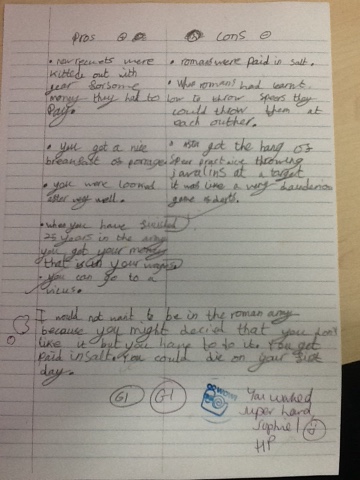 Pros
• new recruits were
kitted out with
gear for some
money they had to
Pay.
• you got a nice
breakfast of
• you were
after very well.
• when you have
25 years in the army
you got your money
that is in your wages.
• you can go to a
Cons
• romans were Paid in salt.
• When romans had learnt
how to throw spears they
could throw them at
each outher.
• got the hang of
spear practice throwing
javelins at a target
it was like a very
game of
I would not want to be in the roman army
because you might that you don't
like it but you have to do it. You get
paid in salt. You could die on your
day.
G1 G1
You worked
super hard,
Sophie!
HP